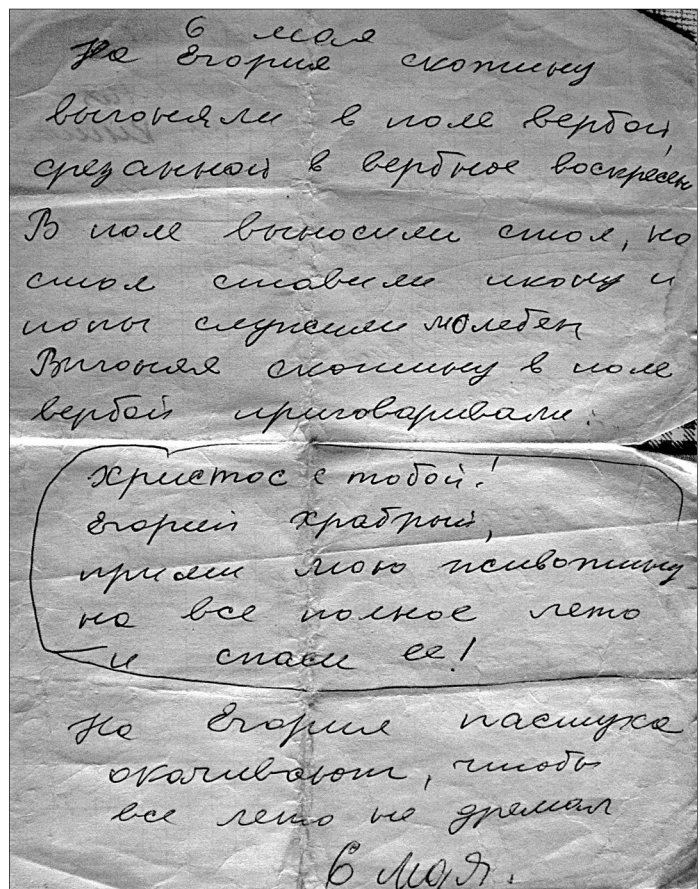 6 мая
На Егория скотину
выгоняли в поле вербой,
срезанной в вербное воскресен
В поле выносили стол, на
стол ставили икону и
попы служили молебен
Выгоняя скотину в поле
вербой приговаривали:
Христос с тобой!
Егорий храбрый,
прими мою животину
на все полное лето
и спаси ее!
На Егория пастуха
окачивают, чтобы
все лето не дремал
6 мая.